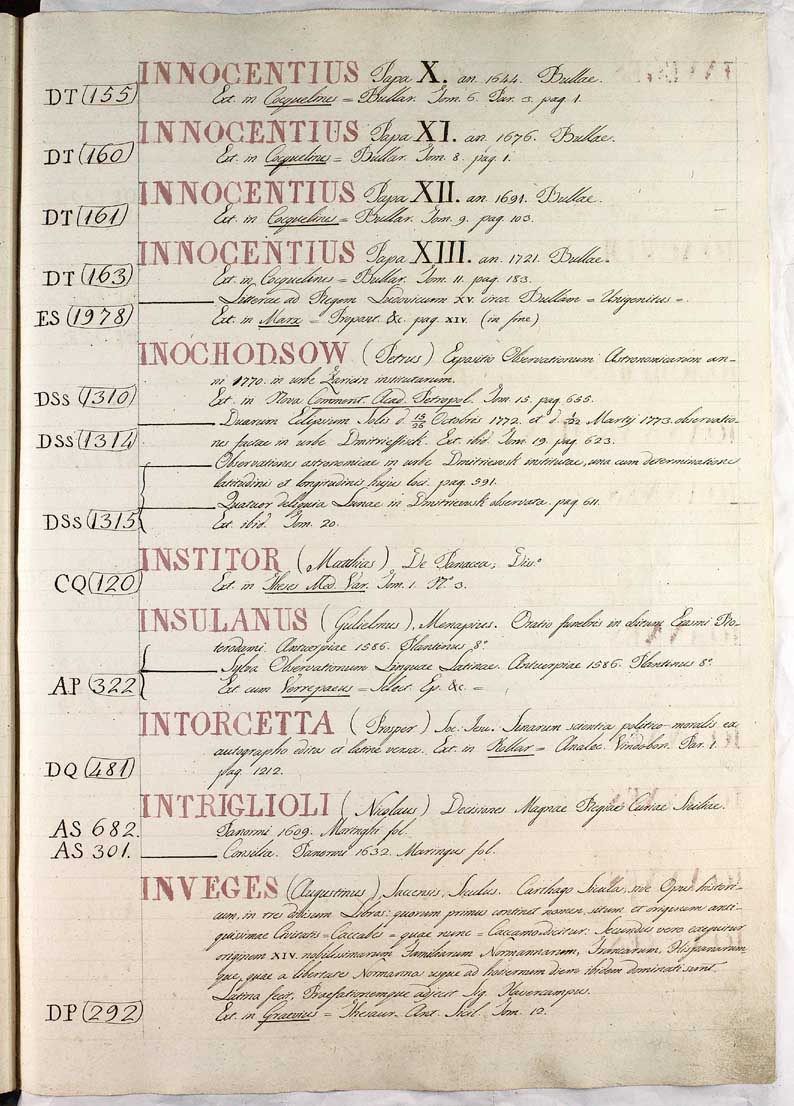 INNOCENTIUS Papa X. an. 1644. Bullae.
DT 155 Ext. in Cocquelines = Bullar. Tom. 6. Par. 3. pag. 1.
INNOCENTIUS Papa XI. an. 1676. Bullae.
DT 160 Ext. in Cocquelines = Bullar. Tom. 8. pag. 1.
INNOCENTIUS Papa XII. an. 1691. Bullae.
DT 161 Ext. in Cocquelines = Bullar. Tom. 9. pag. 103.
INNOCENTIUS Papa XIII. an. 1721. Bullae.
DT 163 Ext. in Cocquelines = Bullar. Tom. 11. pag. 183.
Litterae ad Regem Ludovicum XV. circa Bullam = Unigenitus =.
ES 1978 Ext. in Marx = Propaut. &c. pag. XIV. (in fine)
INOCHODSOW (Petrus) Expositio Observationum Astronomicarum an-
ni 1770. in urbe institutarum.
DSS 1310 Ext. in Nova Comment. Acad. Petropol. Tom. 15. pag. 655.
Duarum Eclipsium Solis d. 15/26 Octobris 1772. et d. Martij 1773. observatio-
DSS 1314 nes factae in urbe Dmitrieffsck. Ext. ibid. Tom. 19. pag. 623.
Observationes astronomicae in urbe Dmitriewsk institutae, una cum determinatione
latitudinis et longitudinis hujus loci. pag. 591.
Quatuor deliquia Lunae in Dmitriewsk observata. pag. 611.
DSS 1315 Ext. ibid. Tom. 20.
INSTITOR (Matthias) De Panacea, Diss.
CQ 120 Ext. in Theses Med. Var. Tom. 1. N.° 3.
INSULANUS (Gulielmus), Menapius. Oratio funebris in obitum Erasmi Ro-
terodami. Antverpiae 1586. Plantinus 8.°
Sylva Observationum Linguae Latinae. Antverpiae 1586. Plantinus 8.°
AP 322 Ext. cum Verrepaeus = Select. Ep. &c. =
INTORCETTA (Prosper) Soc. Jesu. Sinarum scientia politico-moralis ex
autographo edita et latine versa. Ext. in Kollar = Analec. Vindobon. Par. 1.
DQ 481 pag. 1212.
INTRIGLIOLI (Nicolaus) Decisiones Magnae Regiae Curiae Siciliae.
AS 682. Panormi 1609. Maringhi fol.
AS 301. Consilia. Panormi 1632. Maringus fol.
INVEGES (Augustinus), Saccensis, Siculus. Carthago Sicula, sive Opus histori-
cum, in tres divisum Libros: quorum primus continet nomen, situm et originem anti-
quissimae Civitatis = Caccabes = quae nunc = Caccamo dicitur. Secundus vero exequitur
originem XIV. nobilissimarum Familiarum Normannarum, Francarum, Hispanarum-
que, quae a libertate Normanna usque ad hodiernum diem ibidem dominati sunt.
Latina fecit, Praefationemque adjecit Sig. Havercampus.
DP 292 Ext. in Graevius = Thesaur. Ant. Sicil. Tom. 12.